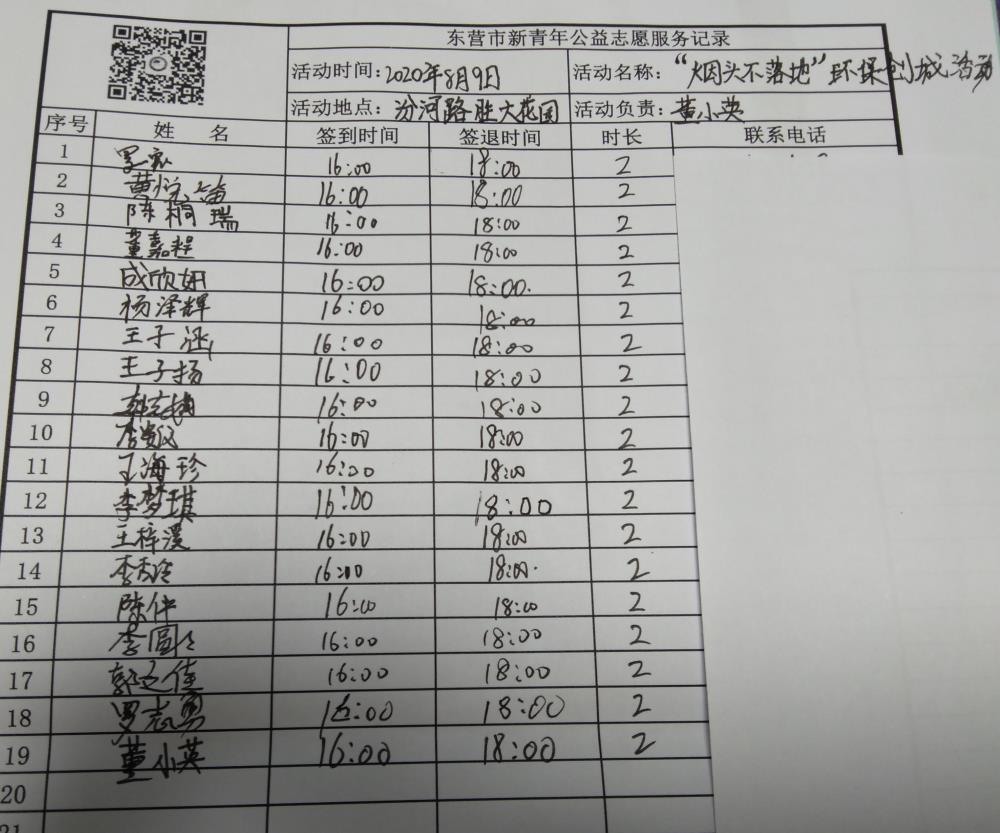 东营市新青年公益志愿服务记录
活动时间：2020年8月9日 活动名称：“烟头不落地”环保创城活动
活动地点：汾河路胜大花园 活动负责：董小英
序号 姓名 签到时间 签退时间 时长 联系电话
1 16:00 18:00 2
2 16:00 18:00 2
3 陈桐瑞 16:00 18:00 2
4 董嘉程 16:00 18:00 2
5 成欣妍 16:00 18:00 2
6 杨泽辉 16:00 18:00 2
7 王子涵 16:00 18:00 2
8 王子扬 16:00 18:00 2
9 16:00 18:00 2
10 16:00 18:00 2
11 王海珍 16:00 18:00 2
12 李梦琪 16:00 18:00 2
13 王梓溪 16:00 18:00 2
14 李秀玲 16:00 18:00 2
15 陈仲 16:00 18:00 2
16 李圆 16:00 18:00 2
17 16:00 18:00 2
18 罗志勇 16:00 18:00 2
19 董小英 16:00 18:00 2
20
21